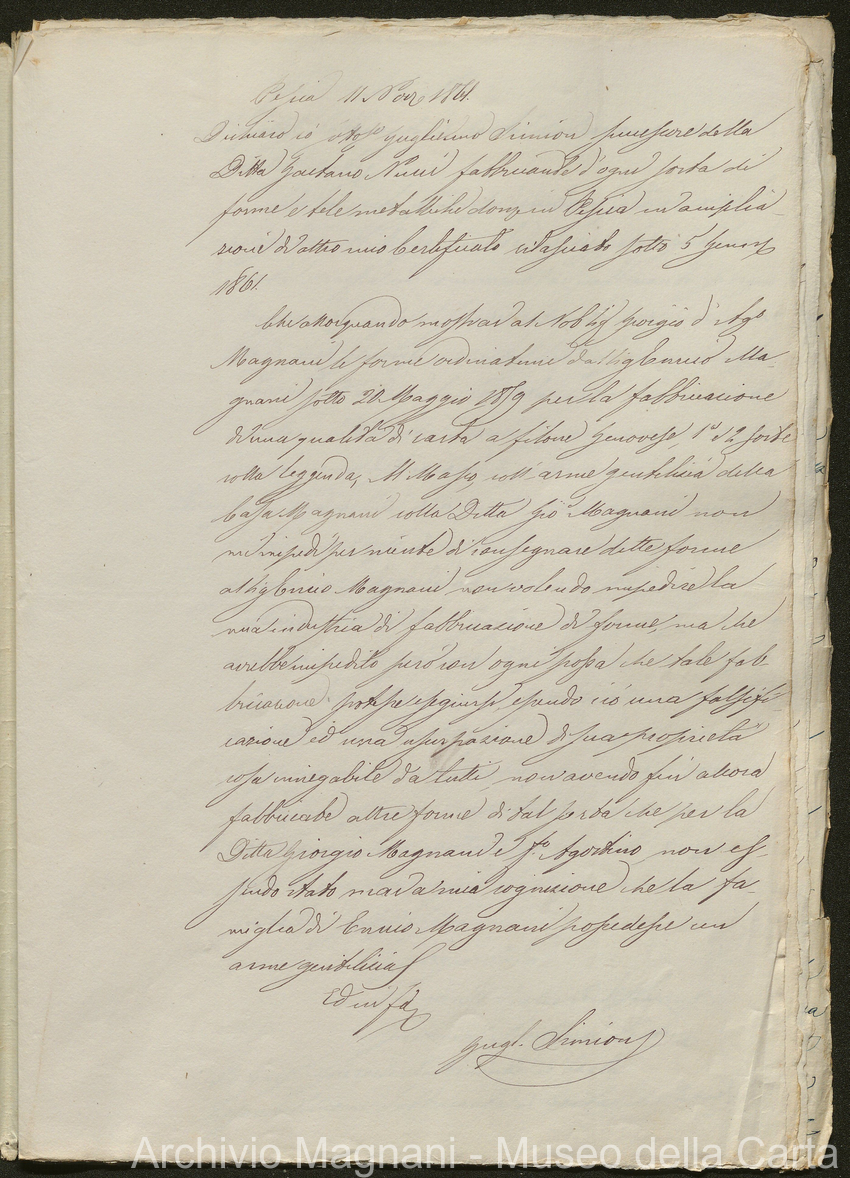 Pescia 11 Nov. 1861.
Dichiaro io Guglielmo Simion successore della
Ditta Gaetano Nucci fabbricante d'ogni sorta di
forme e tele metalliche in Pescia in amplia-
zione di altro mio Certificato rilasciato sotto 5 Genn.
1861.
Che allorquando mostrai al Nob. Sig. Giorgio d' Ag.
Magnani le forme ordinatemi dal Sig. Ennio Ma-
gnani sotto 20 Maggio 1859 per la fabbricazione
di una qualità di carta a filone genovese 1.a e 2.a sorte
colla leggenda, Al Masso, coll'arme gentilizia della
Casa Magnani colla Ditta Gio. Magnani non
m'impedì per niente di consegnare dette forme
al Sig. Ennio Magnani, non volendo impedire la
mia industria di fabbricazione di forme, ma che
avrebbe impedito però con ogni possa che tale fab-
bricazione potesse eseguirsi essendo ciò una falsifi-
cazione ed una usurpazione di sua proprietà
cosa innegabile da tutti, non avendo fin allora
fabbricate altre forme di tal sorta che per la
Ditta Giorgio Magnani f.o Agostino non es-
sendo stato mai a mia cognizione che la fa-
miglia di Ennio Magnani possedesse un
arme gentilizia
Ed in fd.
Gugl. Simion
Archivio Magnani - Museo della Carta